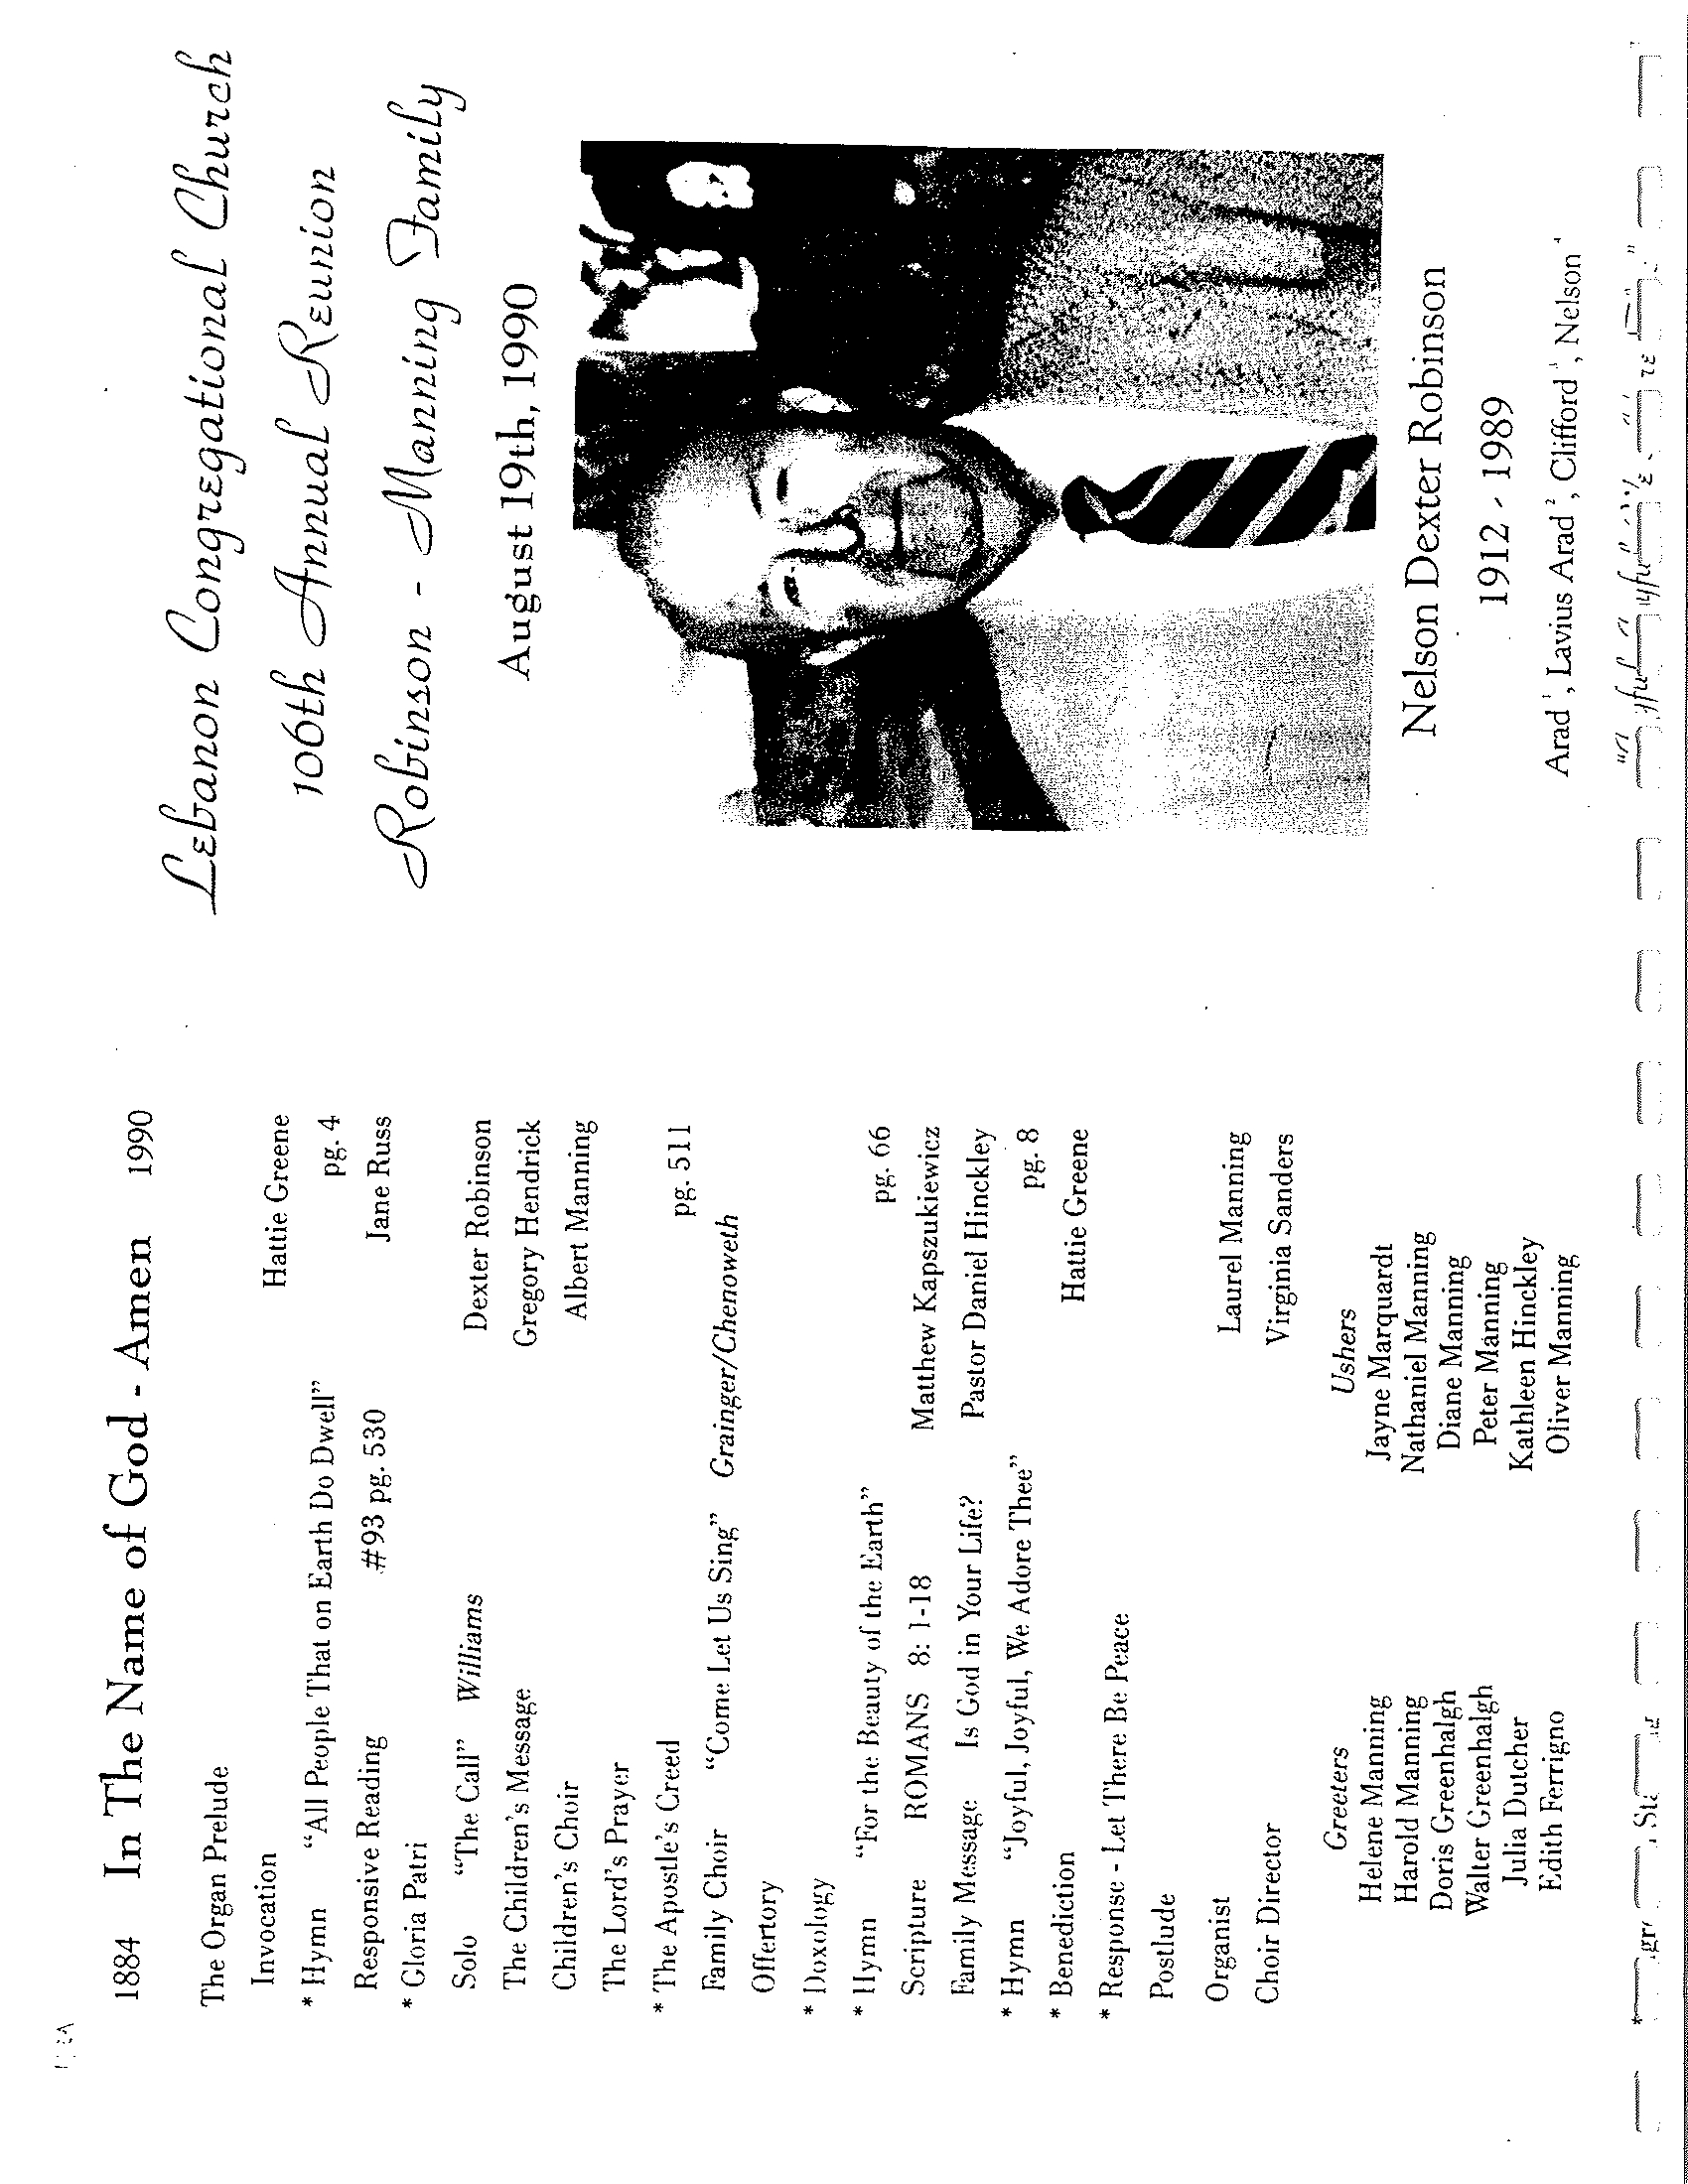 1884 In The Name of God - Amen 1990
The Organ Prelude
Invocation Hattie Greene
* Hymn "All People That on Earth Do Dwell" pg. 4
Responsive Reading #93 pg. 530 Jane Russ
* Gloria Patri
Solo "The Call" Williams Dexter Robinson
The Children's Message Gregory Hendrick
Children's Choir Albert Manning
The Lord's Prayer
* The Apostle's Creed pg. 511
Family Choir "Come Let Us Sing" Grainger/Chenoweth
Offertory
* Doxology
* Hymn "For the Beauty of the Earth" pg. 66
Scripture ROMANS 8: 1-18 Matthew Kapszukiewicz
Family Message Is God in Your Life? Pastor Daniel Hinckley
* Hymn "Joyful, Joyful, We Adore Thee" pg. 8
* Benediction Hattie Greene
* Response - Let There Be Peace
Postlude
Organist Laurel Manning
Choir Director Virginia Sanders
Greeters Ushers
Helene Manning Jayne Marquardt
Harold Manning Nathaniel Manning
Doris Greenhalgh Diane Manning
Walter Greenhalgh Peter Manning
Julia Dutcher Kathleen Hinckley
Edith Ferrigno Oliver Manning
Lebanon Congregational Church
106th Annual Reunion
Robinson - Manning Family
August 19th, 1990
Nelson Dexter Robinson
1912 - 1989
Arad 1, Lavius Arad 2, Clifford 3, Nelson 4